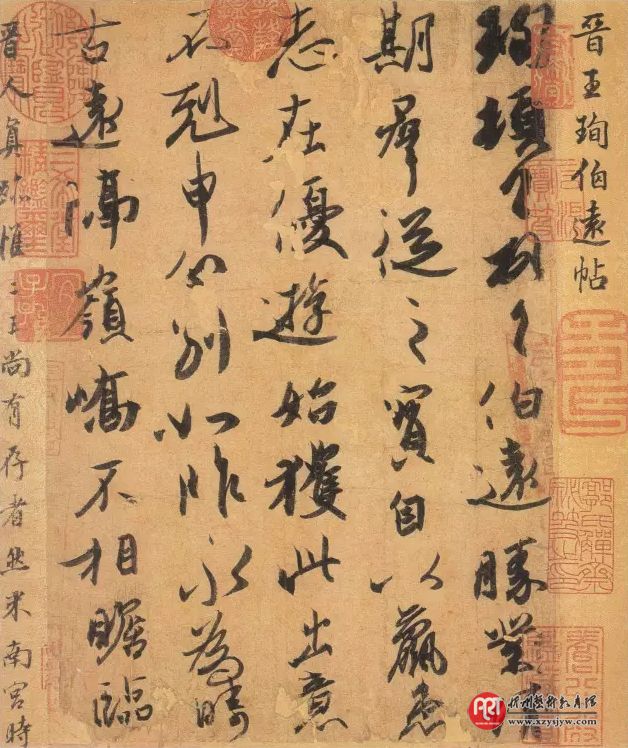 晉王珣伯遠帖
珣頓首頓首伯遠勝業情
期群從之寶自以羸患
志在優遊始獲此出意
不剋申分別如昨永為疇
古遠隔嶺嶠不相瞻臨
晉人真跡惟二王尚有存者然米南宮時
ART
www.xzysjyw.com